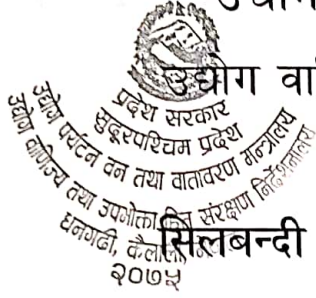 उद्योग
उद्योग वा
प्रदेश सरकार
सुदूरपश्चिम प्रदेश
उद्योग पर्यटन वन तथा वातावरण मन्त्रालय
उद्योग वाणिज्य तथा उपभोक्ता हित संरक्षण निर्देशनालय
धनगढी, कैलाली
२०७५
सिलबन्दी